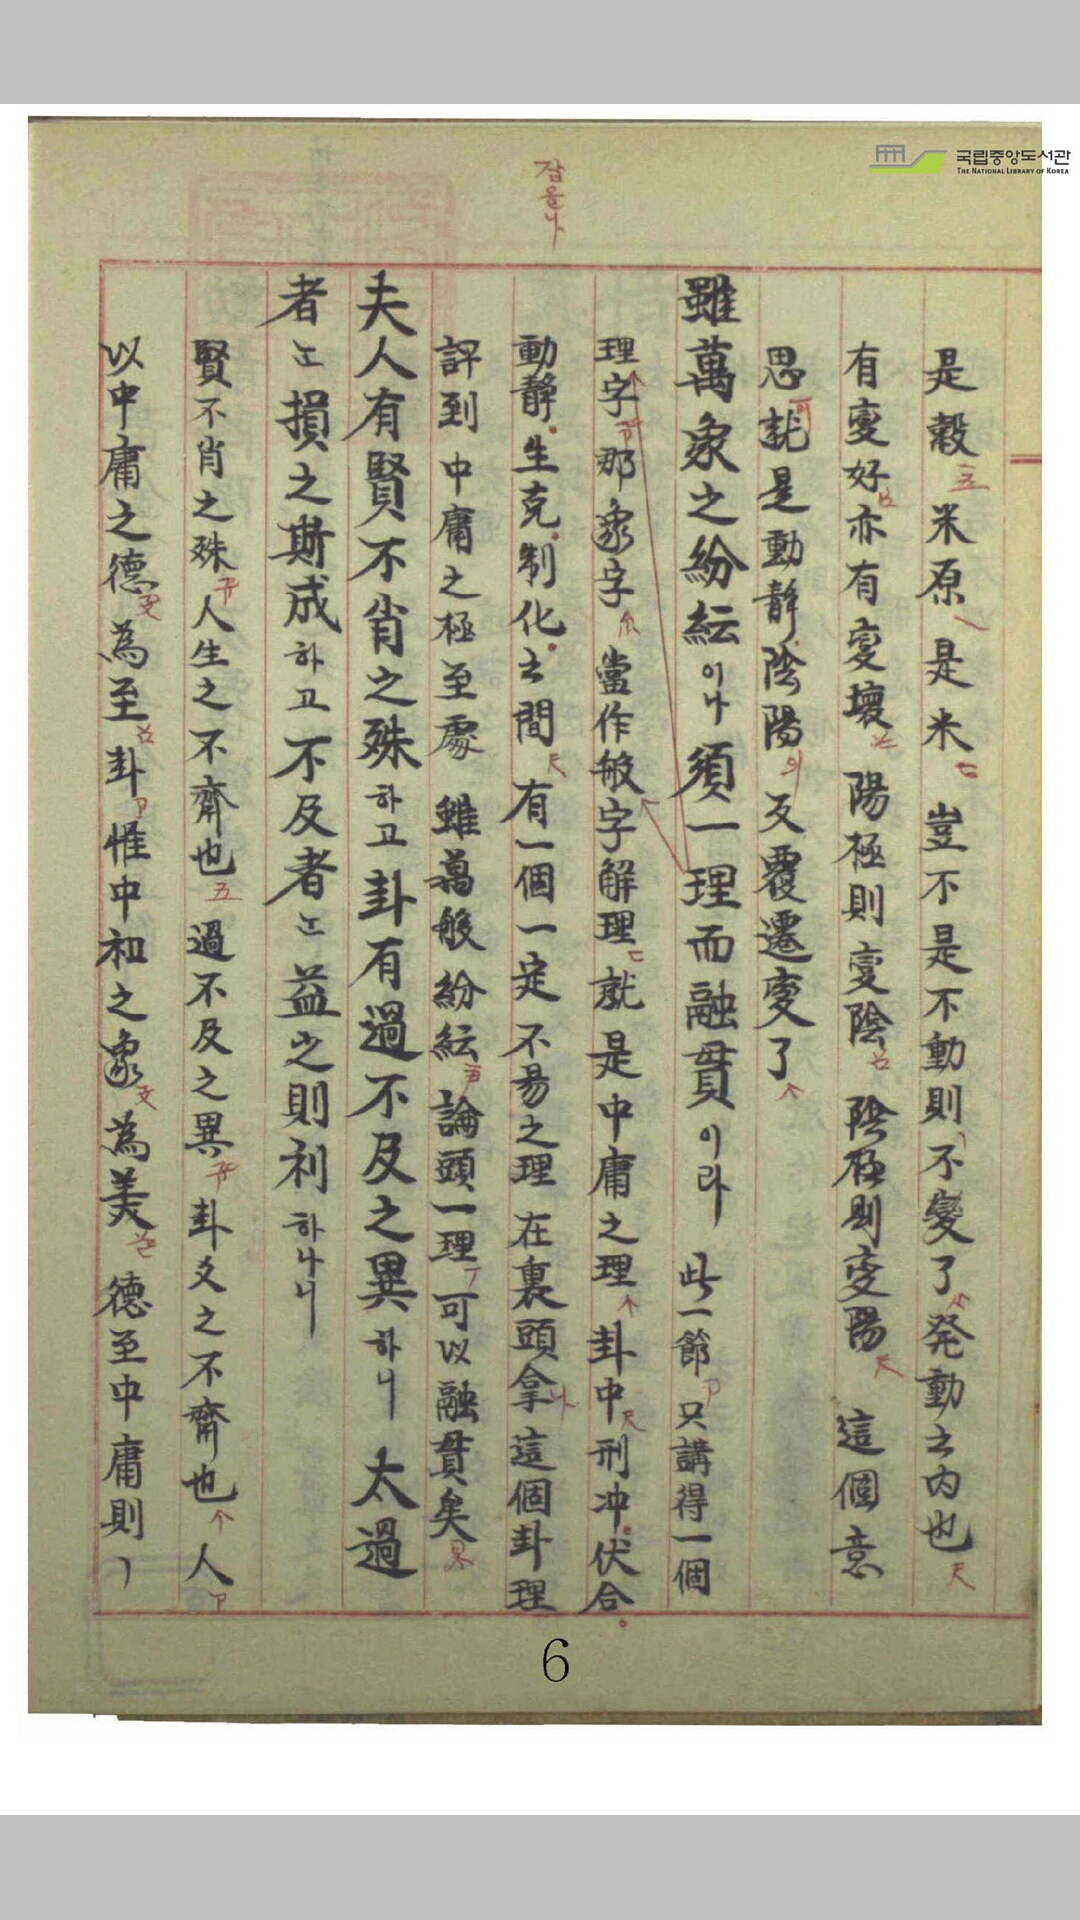 국립중앙도서관
THE NATIONAL LIBRARY OF KOREA
잡을나
是穀米原是米豈不是不動則不變了発動之内也
有變好亦有變壞陽極則變陰陰極則變陽這個意
思就是動靜陰陽反覆遷變了
雖萬象之紛紜이나須一理而融貫이라此一節只講得一個
理字那象字當作般字解理就是中庸之理卦中刑冲伏合
動靜生克制化之間有一個一定不易之理在裏頭拿這個卦理
評到中庸之極至處雖萬般紛紜論頭一理可以融貫矣
夫人有賢不肖之殊하고卦有過不及之異하니太過
者損之斯成하고不及者益之則利하나니
賢不肖之殊人生之不齊也過不及之異卦爻之不齊也人
以中庸之德為至卦惟中和之象為美德至中庸則
6